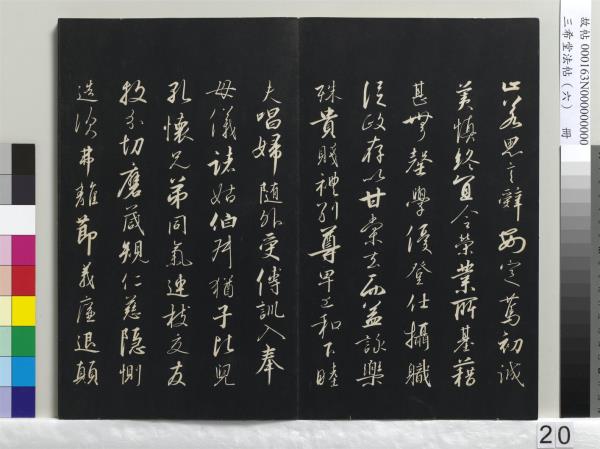 止若思言辭安定篤初誠
美慎終宜令榮業所基藉
甚無馨學優登仕攝職
從政存以甘棠去而益詠樂
殊貴賤禮別尊卑上和下睦
夫唱婦隨外受傅訓入奉
母儀諸姑伯叔猶子比兒
孔懷兄弟同氣連枝交友
投分切磨箴規仁慈隱惻
造次弗離節義廉退顛
故帖 000163N000000000
三希堂法帖（六） 冊
20